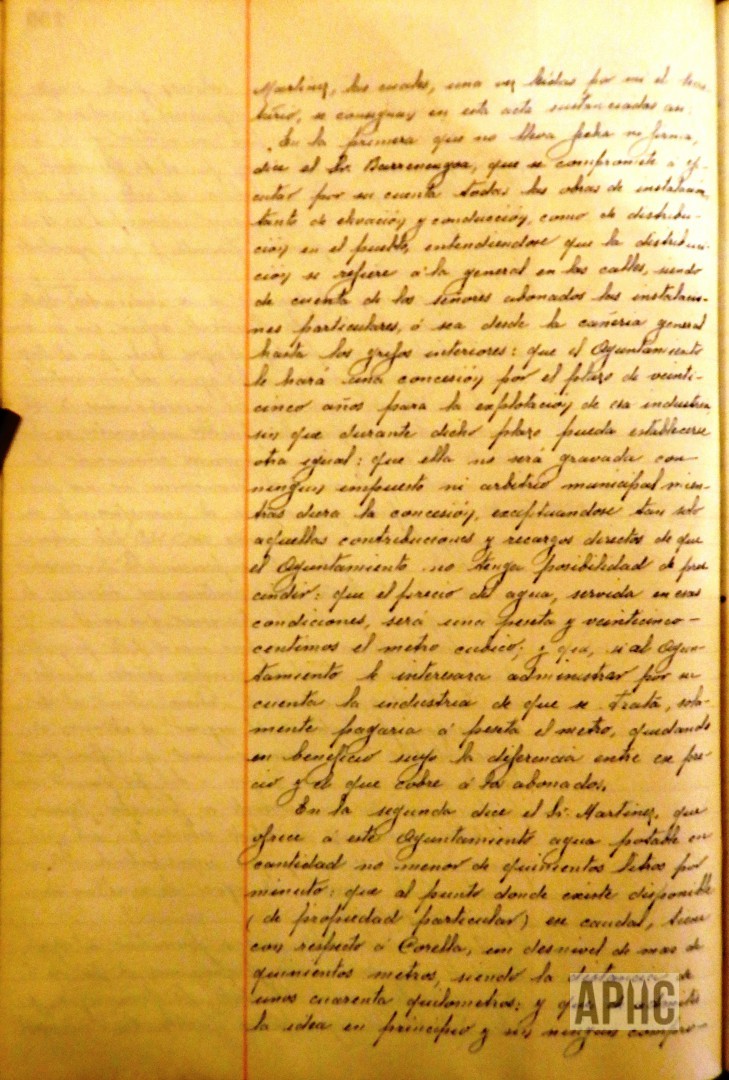 Martinez, las cuales, una vez leidas por mi el Secre-
tario, se consignan en esta acta sustanciadas asi:
En la primera que no lleva fecha ni firma,
dice el Sr. Barrenengoa, que se compromete á eje-
cutar por su cuenta todas las obras de instalacion,
tanto de elevación y conducción, como de distribu-
ción en el pueblo, entendiendose que la distribu-
ción se refiere á la general en las calles, siendo
de cuenta de los señores abonados las instalacio-
nes particulares, ó sea desde la cañeria general
hasta los grifos interiores: que el Ayuntamiento
le hará una concesión por el plazo de veinti-
cinco años para la explotación de esa industria
sin que durante dicho plazo pueda establecerse
otra igual: que ella no será gravada con
ningun impuesto ni arbitrio municipal mien-
tras dura la concesión, exceptuandose tan solo
aquellas contribuciones y recargos directos de que
el Ayuntamiento no tenga posibilidad de pres-
cindir: que el precio del agua, servida en esas
condiciones, será una peseta y veinticinco
centimos el metro cubico; y que, si al Ayun-
tamiento le interesara administrar por su
cuenta la industria de que se trata, sola-
mente pagaria á peseta el metro, quedando
en beneficio suyo la diferencia entre ese pre-
cio y el que cobre á los abonados.
En la segunda dice el Sr. Martinez, que
ofrece á este Ayuntamiento agua potable en
cantidad no menor de quinientos litros por
minuto: que al punto donde existe disponible
(de propiedad particular) ese caudal, tiene
con respecto á Corella, un desnivel de mas de
quinientos metros, siendo la distancia de
unos cuarenta quilometros; y que
la idea en principio y sin ningun compro-
APHC